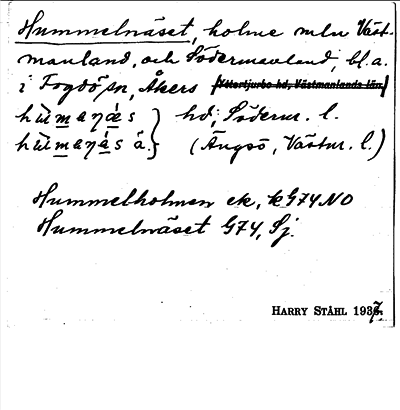 Hummelnäset, holme mln Väst-
manland, och Södermanland, bl.a.
i Fogdö sn, Åkers [Yttertjurbo hd, Västmanlands län,]
hùmaŋás } hd, Söderm. l.
hùmaŋás á. } (Ängsö, Västm. l.)
Hummelholmen ek, k G74 NO
Hummelnäset G74, Sj.
HARRY STÅHL 1937.